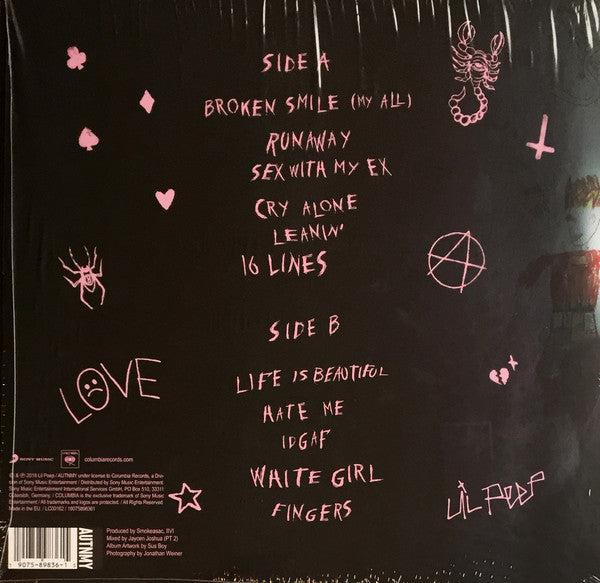 SIDE A
BROKEN SMILE (MY ALL)
RUNAWAY
SEX WITH MY EX
CRY ALONE
LEANIN'
16 LINES
SIDE B
LIFE IS BEAUTIFUL
HATE ME
IDGAF
WHITE GIRL
FINGERS
LOVE
LIL PEEP
SONY MUSIC
columbiarecords.com
℗ 2018 Lil Peep / AUTNMY under license to Columbia Records, a Div-
ision of Sony Music Entertainment / Distributed by Sony Music Entertainment.
Sony Music Entertainment International Services GmbH, PO Box 510, 33311
Gütersloh, Germany. / COLUMBIA is the exclusive trademark of Sony Music
Entertainment / All trademarks and logos are protected. / All Rights Reserved.
Made in the EU. / LC00162 / 19075898361
AUTNMY
Produced by Smokeasac, IIVI
Mixed by Jaycen Joshua (PT 2)
Album Artwork by Sus Boy
Photography by Jonathan Weiner
1 9075-89836-1 5